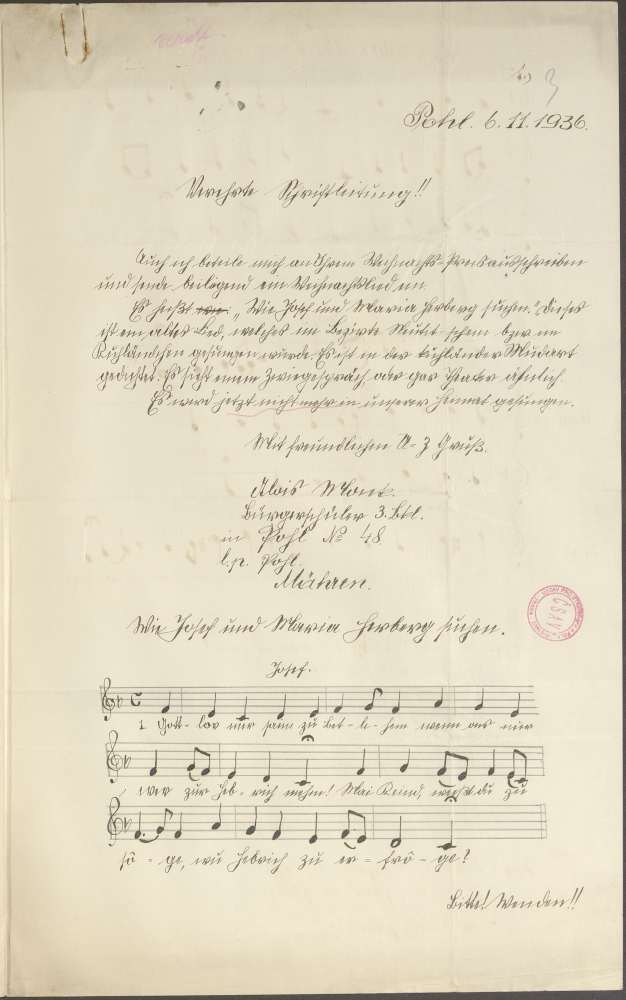 Pohl. 6.11.1936.
Verehrte Schriftleitung!!
Auch ich beteile mich an Ihrem Weihnachts-Preisausschreiben
und sende beiliegend ein Weihnachtslied ein.
Es heißt „Wie Josef und Maria Herberg suchen." Dieses
ist ein altes Lied, welches im Bezirke Neutitschein bzw. im
Kuhländchen gesungen wurde. Es ist in der Kuhländler Mundart
gedichtet. Es sieht einem Zwiegespräch oder gar Theater ähnlich.
Es wird jetzt nicht mehr in unserer Heimat gesungen.
Mit freundlichem A-Z Gruß.
Alois
Bürgerschüler 3. Kl.
in Pohl No 48
l.p. Pohl.
Mähren.
Wie Josef und Maria Herberg suchen.
Josef.
1 Gott-lob mir sann zu Bet-le-hem wenn ons nier
wer zur Heb-rich nehm! Mai Kend, du zu
sô-ge, wu Hebrich zu er-frô-ge?
Bitte! Wenden!!